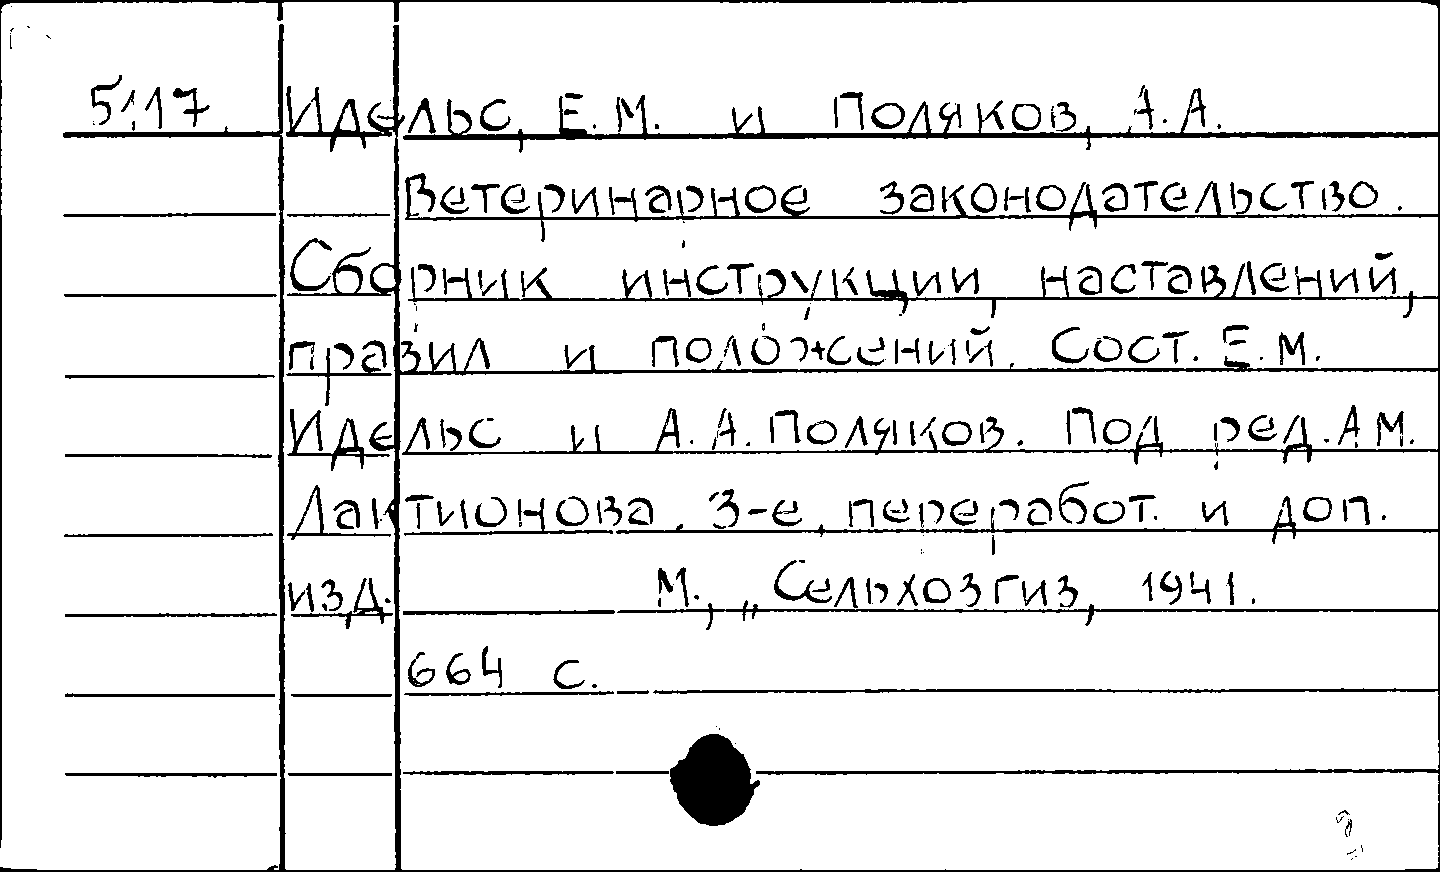 5117. Идельс, Е.М. и Поляков, А.А.
Ветеринарное законодательство.
Сборник инструкции, наставлений,
правил и положений. Сост. Е.М.
Идельс и А.А. Поляков. Под ред. А.М.
Лактионова. 3-е, переработ. и доп.
изд. М., „Сельхозгиз, 1941.
664 с.